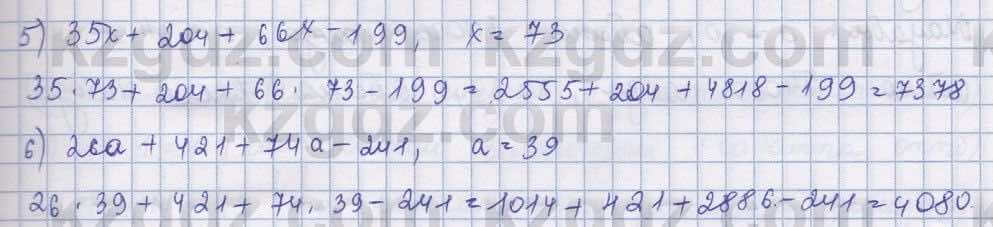 5) 35x + 204 + 66x - 199, x = 73
35 · 73 + 204 + 66 · 73 - 199 = 2555 + 204 + 4818 - 199 = 7378
6) 26a + 421 + 74a - 241, a = 39
26 · 39 + 421 + 74 · 39 - 241 = 1014 + 421 + 2886 - 241 = 4080
kzgdz.com